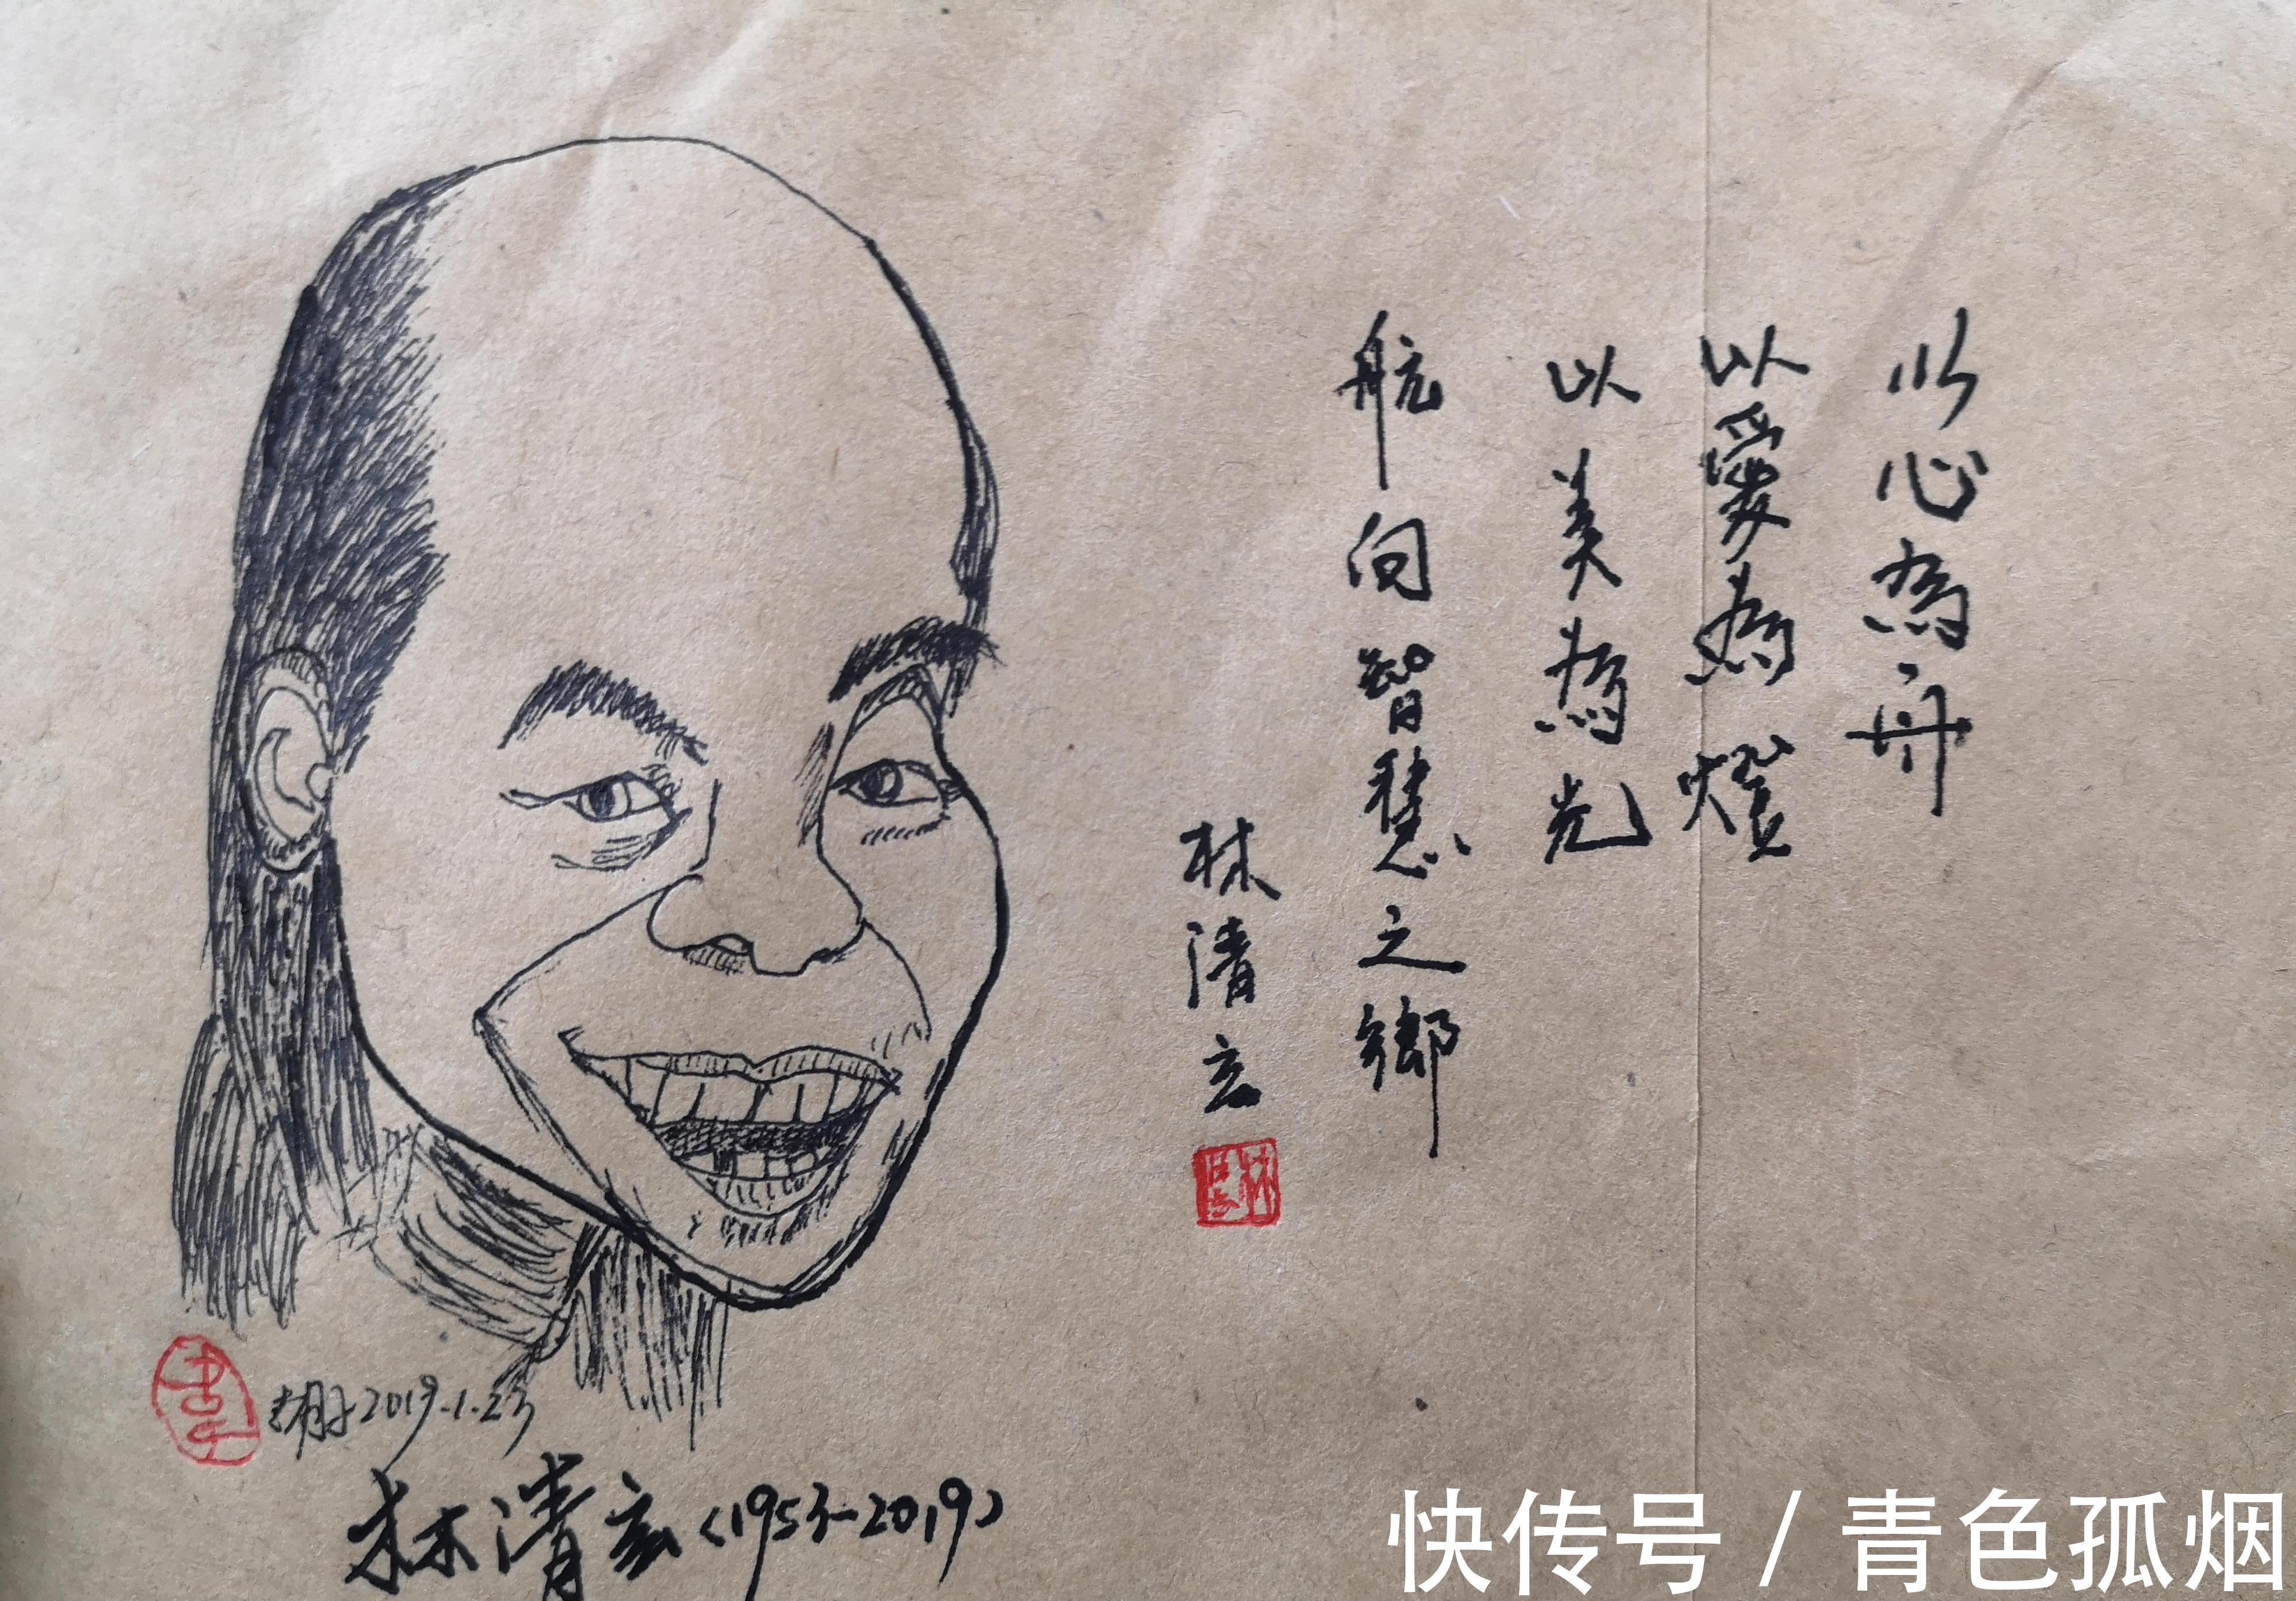 以心為舟
以愛為燈
以美為光
航向智慧之鄉
林清玄
胡子2019.1.23
林清玄(1953-2019)
快传号/青色孤烟